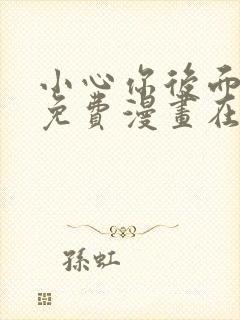 小心你後面
免費漫畫在
孫虹